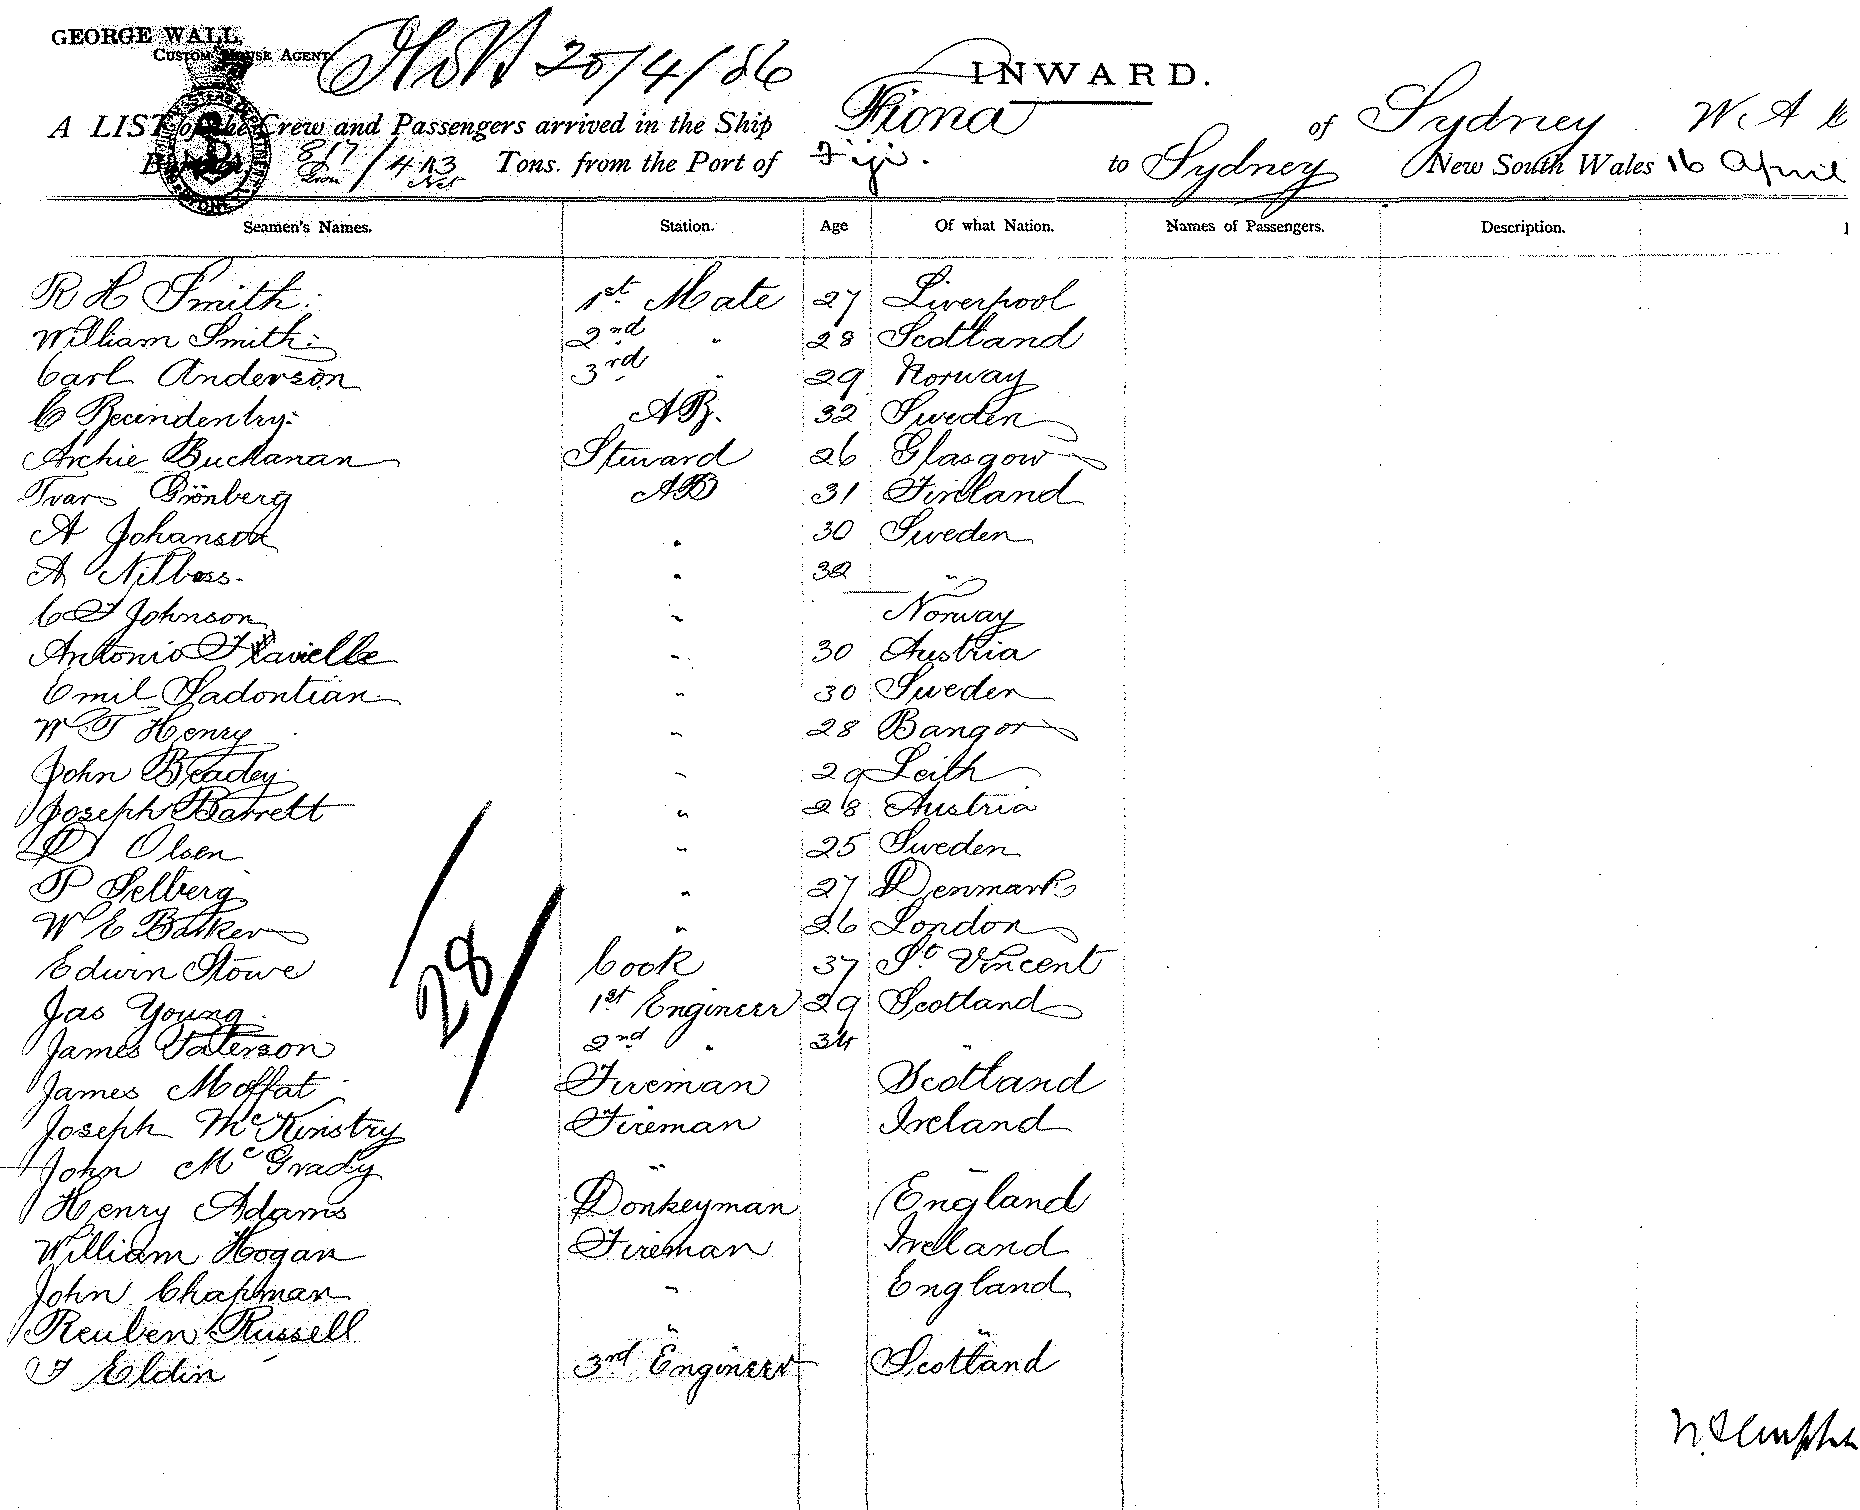 GEORGE WALL,
CUSTOM HOUSE AGENT.
20/4/86
INWARD.
A LIST of the Crew and Passengers arrived in the Ship Fiona of Sydney W. A
817 / 443 Tons. from the Port of Fiji. to Sydney New South Wales 16 April
Seamen's Names. Station. Age Of what Nation. Names of Passengers. Description.
R H Smith. 1st Mate 27 Liverpool
William Smith. 2nd " 28 Scotland
Carl Anderson 3rd " 29 Norway
C AB. 32 Sweden
Archie Buchanan Steward 26 Glasgow
Ivar Grönberg AB 31 Finland
A Johanson " 30 Sweden
A " 32 "
C F Johnson " Norway
Antonio " 30 Austria
Emil Sadontian " 30 Sweden
W T Henry " 28 Bangor
John Beadey " 29 Leith
Joseph Barrett " 28 Austria
D Olsen " 25 Sweden
P Selberg " 27 Denmark
W E Barker " 26 London
Edwin Stowe Cook 37 St Vincent
Jas Young 1st Engineer 29 Scotland
James Paterson 2nd " 34 "
28
James Moffat Fireman Scotland
Joseph McKinstry Fireman Ireland
John McGrady " "
Henry Adams Donkeyman England
William Hogan Fireman Ireland
John Chapman " England
Reuben Russell " "
F Eldin 3rd Engineer Scotland